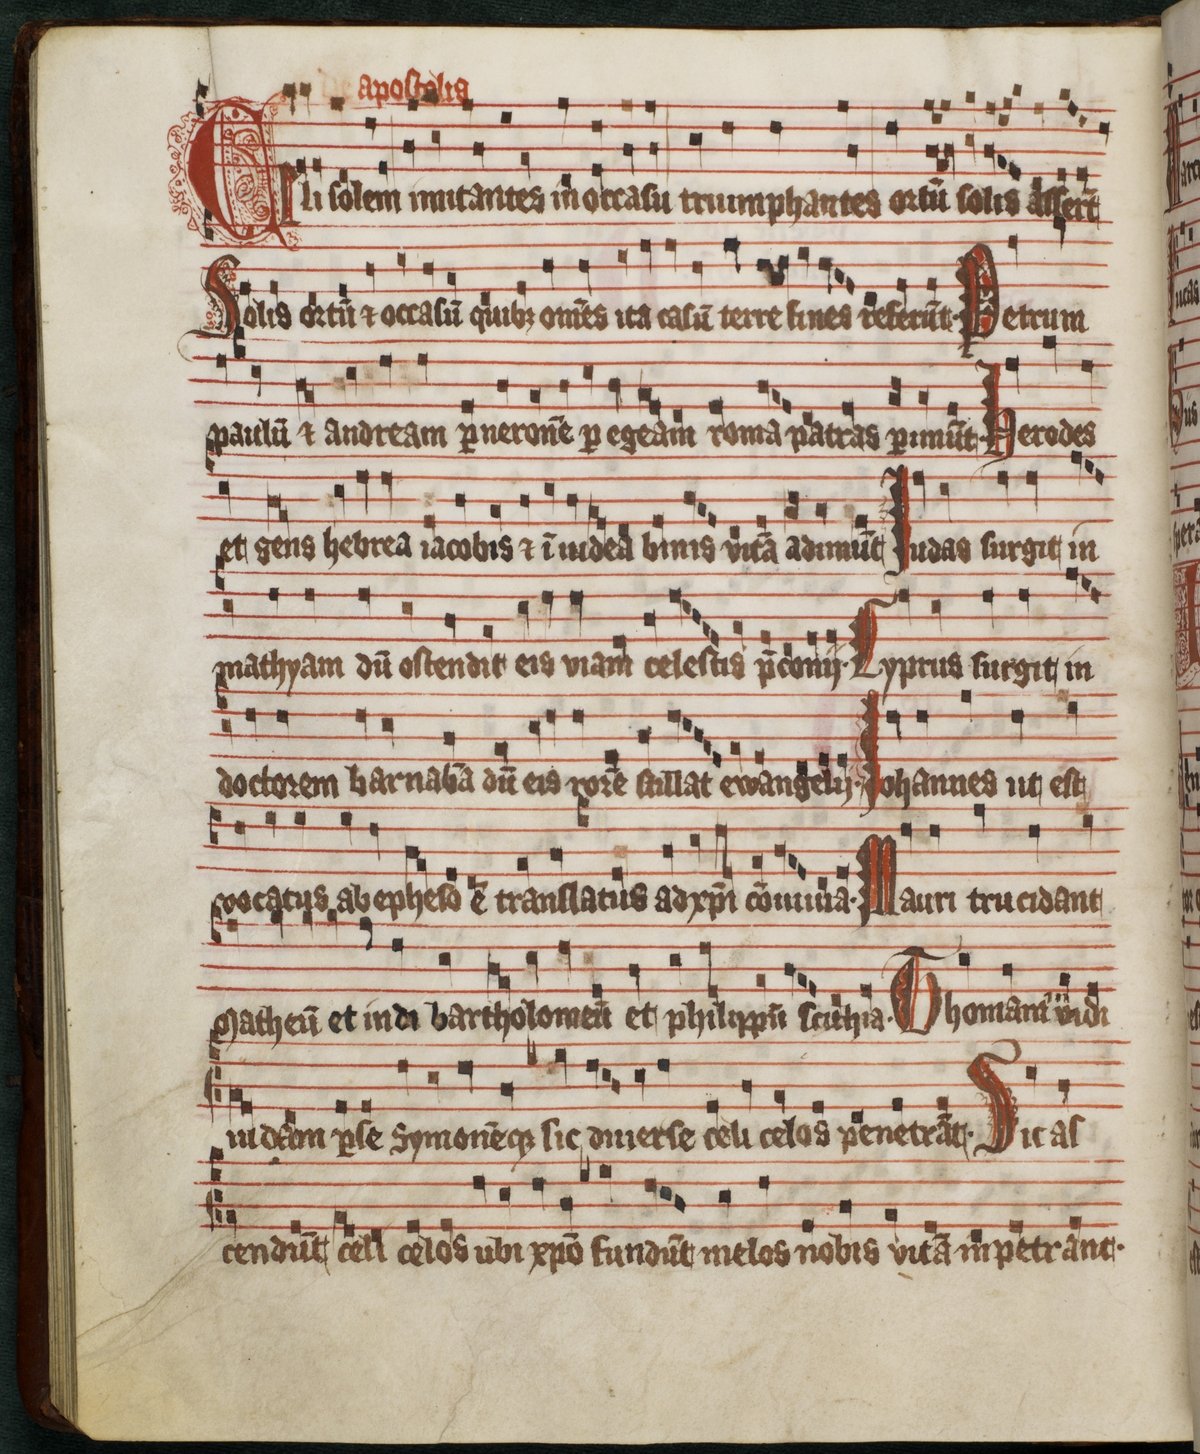 de apostolis
Celi solem imitantes in occasu triumphantes ortū solis asserūt
Solis ortū ⁊ occasū quibꝫ om̄es ita casū terre fines referūt. Petrum
paulū ⁊ andream ꝑ neronē ꝑ egeam roma patras ꝑimūt. Herodes
et gens hebrea iacobis ⁊ ī iudea binis vitā adimūt Iudas surgit in
mathyam dū ostendit eis viam celestis p̄conij. Cyprus surgit in
doctorem barnabā dū eis rorē stillat ewangelij. Iohannes ut est
vocatus ab epheso ē translatus ad xp̄i cōniuia. Mauri trucidant
Matheū et indi bartholomeū et philippū scithia. Thomam indi
iudam ꝑse Symonēqꝫ sic diuerse celi celos penetrāt. Sic as
cendūt celi celos ubi xp̄o fundūt melos nobis vitā inpetrant.